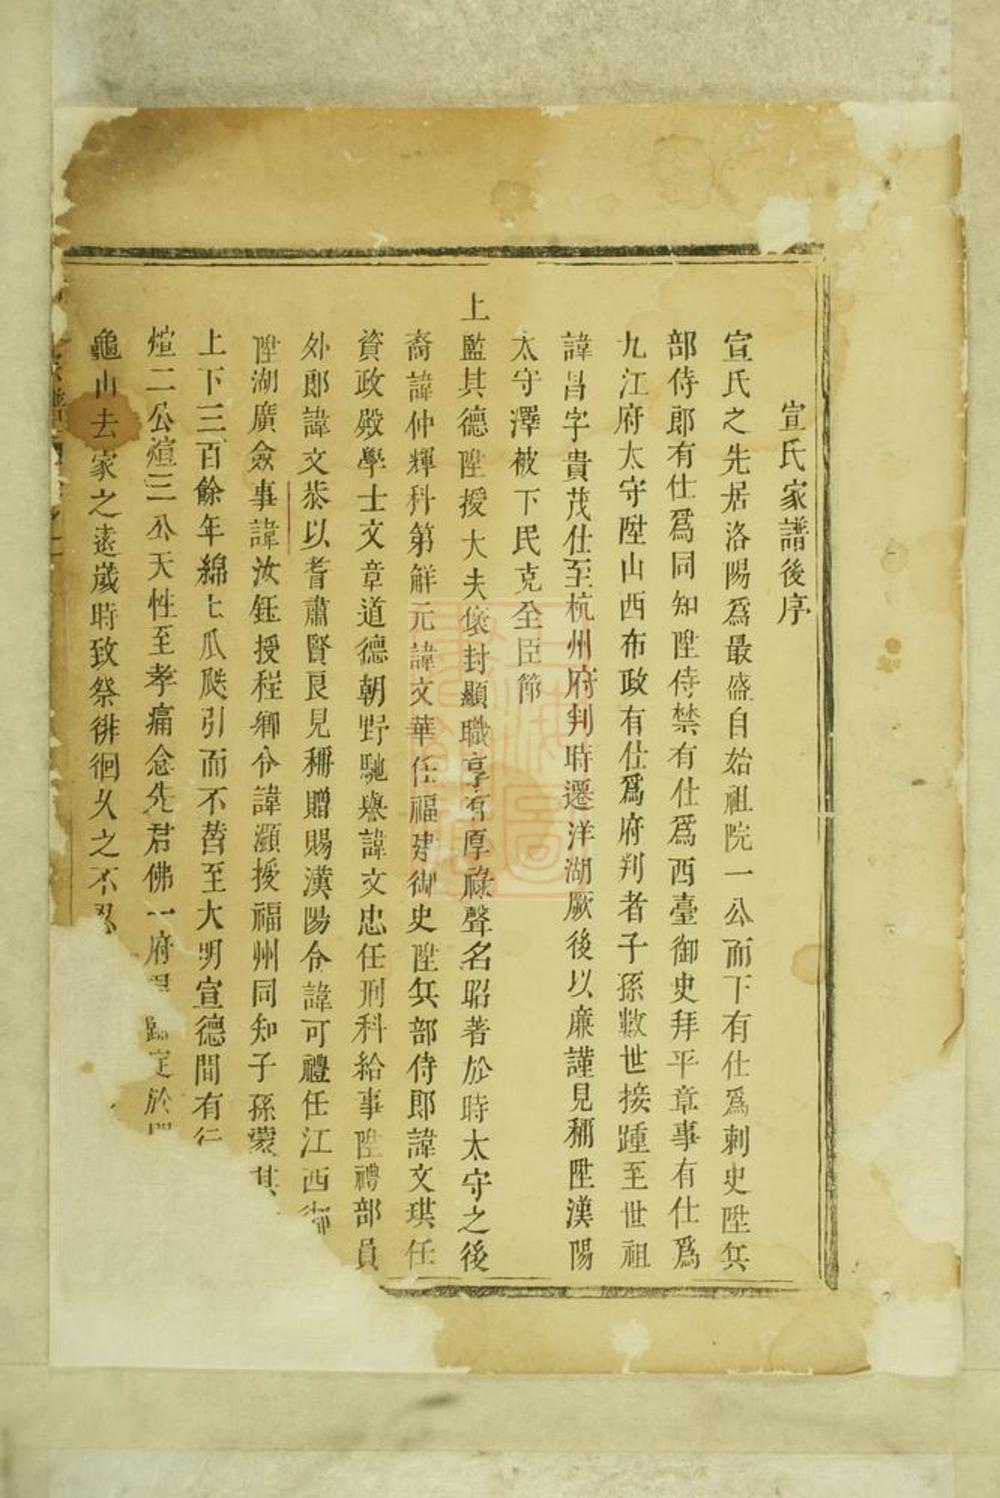 宣氏家譜後序
宣氏之先居洛陽爲最盛自始祖院一公而下有仕爲刺史陞兵
部侍郎有仕爲同知陞侍禁有仕爲西臺御史拜平章事有仕爲
九江府太守陞山西布政有仕爲府判者子孫數世接踵至世祖
諱昌字貴茂仕至杭州府判時遷洋湖厥後以廉謹見稱陞漢陽
太守澤被下民克全臣節
上監其德陞授大夫褒封顯職享有厚祿聲名昭著於時太守之後
裔諱仲輝科第解元諱文華任福建御史陞兵部侍郎諱文琪任
資政殿學士文章道德朝野馳譽諱文忠任刑科給事陞禮部員
外郎諱文恭以耆肅賢良見稱贈賜漢陽令諱可禮任江西
陞湖廣僉事諱汝鈺授程鄉令諱灝授福州同知子孫蒙其
上下三百餘年綿七瓜瓞引而不替至大明宣德間有行
煊二公煊三公天性至孝痛念先君佛一府 歸定於
龜山去家之遠歲時致祭徘徊久之不忍